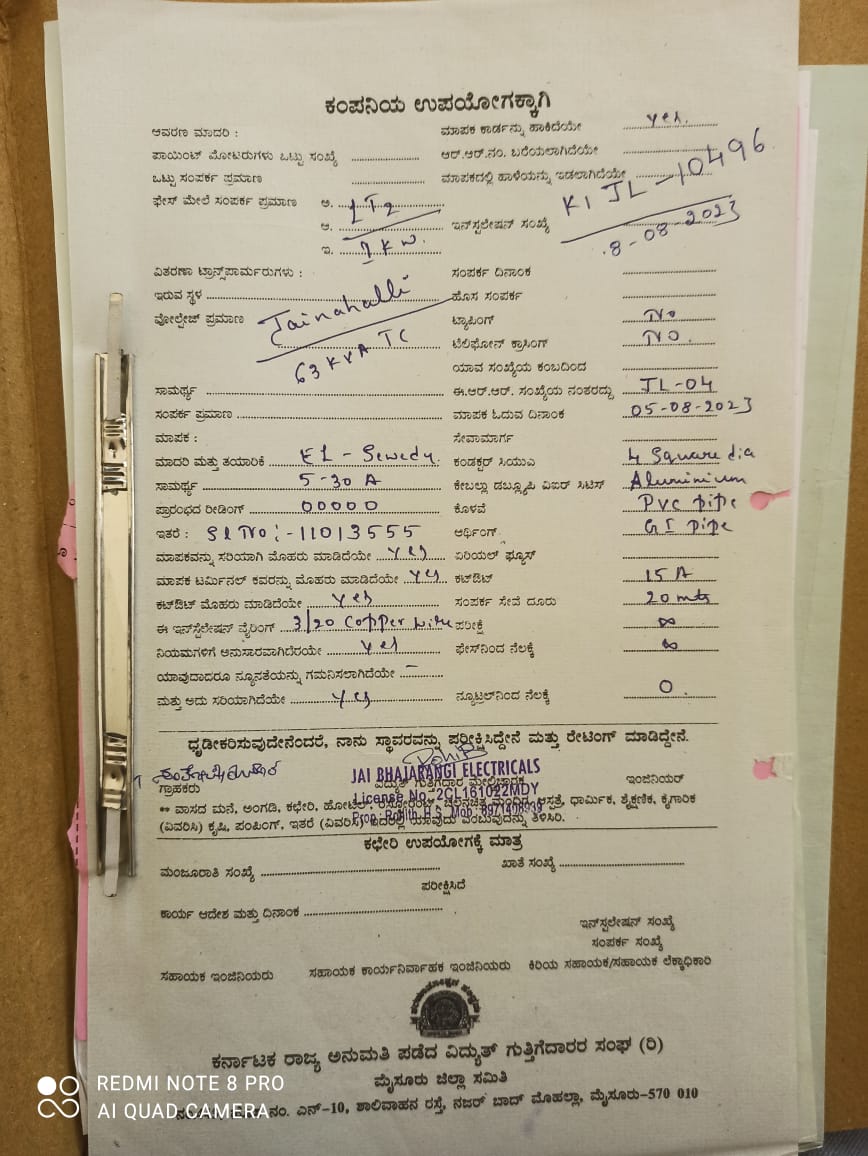 ಕಂಪನಿಯ ಉಪಯೋಗಕ್ಕಾಗಿ
ಆವರಣ ಮಾದರಿ : ಮಾಪಕ ಕಾರ್ಡನ್ನು ಹಾಕಿದೆಯೇ Yes.
ಪಾಯಿಂಟ್ ಮೋಟರುಗಳು ಒಟ್ಟು ಸಂಖ್ಯೆ ಆರ್.ಆರ್.ನಂ. ಬರೆಯಲಾಗಿದೆಯೇ
ಒಟ್ಟು ಸಂಪರ್ಕ ಪ್ರಮಾಣ ಮಾಪಕದಲ್ಲಿ ಹಾಳೆಯನ್ನು ಇಡಲಾಗಿದೆಯೇ
ಫೇಸ್ ಮೇಲೆ ಸಂಪರ್ಕ ಪ್ರಮಾಣ ಅ. KIJL-10496
ಆ. ಇನ್‌ಸ್ಟಲೇಷನ್ ಸಂಖ್ಯೆ 8-08-2023
ಇ. 1 KW.
ವಿತರಣಾ ಟ್ರಾನ್ಸ್‌ಫಾರ್ಮರುಗಳು : ಸಂಪರ್ಕ ದಿನಾಂಕ
ಇರುವ ಸ್ಥಳ Jainahalli ಹೊಸ ಸಂಪರ್ಕ
ವೋಲ್ಟೇಜ್ ಪ್ರಮಾಣ ಟ್ಯಾಪಿಂಗ್ No
63 KVA TC ಟೆಲಿಫೋನ್ ಕ್ರಾಸಿಂಗ್ No.
ಯಾವ ಸಂಖ್ಯೆಯ ಕಂಬದಿಂದ
ಸಾಮರ್ಥ್ಯ ಈ.ಆರ್.ಆರ್. ಸಂಖ್ಯೆಯ ನಂತರದ್ದು JL-04
ಸಂಪರ್ಕ ಪ್ರಮಾಣ ಮಾಪಕ ಓದುವ ದಿನಾಂಕ 05-08-2023
ಮಾಪಕ : ಸೇವಾಮಾರ್ಗ
ಮಾದರಿ ಮತ್ತು ತಯಾರಿಕೆ EL-Sewedy. ಕಂಡಕ್ಟರ್ ಸಿಯುಎ 4 Square dia
ಸಾಮರ್ಥ್ಯ 5-30 A ಕೇಬಲ್ಲು ಡಬ್ಲ್ಯೂಪಿ ವಿಐರ್ ಸಿಟಿಸ್ Aluminium
ಪ್ರಾರಂಭದ ರೀಡಿಂಗ್ 00000 ಕೊಳವೆ PVC pipe
ಇತರೆ : Sl No:-11013555 ಆರ್ಥಿಂಗ್ GI pipe
ಮಾಪಕವನ್ನು ಸರಿಯಾಗಿ ಮೊಹರು ಮಾಡಿದೆಯೇ Yes ಏರಿಯಲ್ ಫ್ಯೂಸ್
ಮಾಪಕ ಟರ್ಮಿನಲ್ ಕವರನ್ನು ಮೊಹರು ಮಾಡಿದೆಯೇ Yes ಕಟ್‌ಔಟ್ 15 A
ಕಟ್‌ಔಟ್ ಮೊಹರು ಮಾಡಿದೆಯೇ Yes ಸಂಪರ್ಕ ಸೇವೆ ದೂರು 20 mts
ಈ ಇನ್‌ಸ್ಟಲೇಷನ್ ವೈರಿಂಗ್ 3/20 Copper wire ಪರೀಕ್ಷೆ ∞
ನಿಯಮಗಳಿಗೆ ಅನುಸಾರವಾಗಿದೆರೆಯೇ Yes ಫೇಸ್‌ನಿಂದ ನೆಲಕ್ಕೆ ∞
ಯಾವುದಾದರೂ ನ್ಯೂನತೆಯನ್ನು ಗಮನಿಸಲಾಗಿದೆಯೇ –
ಮತ್ತು ಅದು ಸರಿಯಾಗಿದೆಯೇ Yes ನ್ಯೂಟ್ರಲ್‌ನಿಂದ ನೆಲಕ್ಕೆ 0.
ಧೃಡೀಕರಿಸುವುದೇನೆಂದರೆ, ನಾನು ಸ್ಥಾವರವನ್ನು ಪರೀಕ್ಷಿಸಿದ್ದೇನೆ ಮತ್ತು ರೇಟಿಂಗ್ ಮಾಡಿದ್ದೇನೆ.
JAI BHAJARANGI ELECTRICALS
ಗ್ರಾಹಕರು ವಿದ್ಯುತ್ ಗುತ್ತಿಗೆದಾರ ಮೇಲ್ವಿಚಾರಕ ಇಂಜಿನಿಯರ್
License No.-2CL161022MDY
** ವಾಸದ ಮನೆ, ಅಂಗಡಿ, ಕಛೇರಿ, ಹೋಟೆಲ್, ಆಸ್ಪತ್ರೆ, ಧಾರ್ಮಿಕ, ಶೈಕ್ಷಣಿಕ, ಕೈಗಾರಿಕ
Prop: Rohith H.S. Mob: 8971408939
(ವಿವರಿಸಿ) ಕೃಷಿ, ಪಂಪಿಂಗ್, ಇತರೆ (ವಿವರಿಸಿ) ಇದರಲ್ಲಿ ಯಾವುದು ಎಂಬುವುದನ್ನು ತಿಳಿಸಿರಿ.
ಕಛೇರಿ ಉಪಯೋಗಕ್ಕೆ ಮಾತ್ರ
ಮಂಜೂರಾತಿ ಸಂಖ್ಯೆ ಖಾತೆ ಸಂಖ್ಯೆ
ಪರೀಕ್ಷಿಸಿದೆ
ಕಾರ್ಯ ಆದೇಶ ಮತ್ತು ದಿನಾಂಕ
ಇನ್‌ಸ್ಟಲೇಷನ್ ಸಂಖ್ಯೆ
ಸಂಪರ್ಕ ಸಂಖ್ಯೆ
ಸಹಾಯಕ ಇಂಜಿನಿಯರು ಸಹಾಯಕ ಕಾರ್ಯನಿರ್ವಾಹಕ ಇಂಜಿನಿಯರು ಕಿರಿಯ ಸಹಾಯಕ/ಸಹಾಯಕ ಲೆಕ್ಕಾಧಿಕಾರಿ
ಕರ್ನಾಟಕ ರಾಜ್ಯ ಅನುಮತಿ ಪಡೆದ ವಿದ್ಯುತ್ ಗುತ್ತಿಗೆದಾರರ ಸಂಘ (ರಿ)
ಮೈಸೂರು ಜಿಲ್ಲಾ ಸಮಿತಿ
ನಂ. ಎನ್-10, ಶಾಲಿವಾಹನ ರಸ್ತೆ, ನಜರ್ ಬಾದ್ ಮೊಹಲ್ಲಾ, ಮೈಸೂರು-570 010
REDMI NOTE 8 PRO
AI QUAD CAMERA